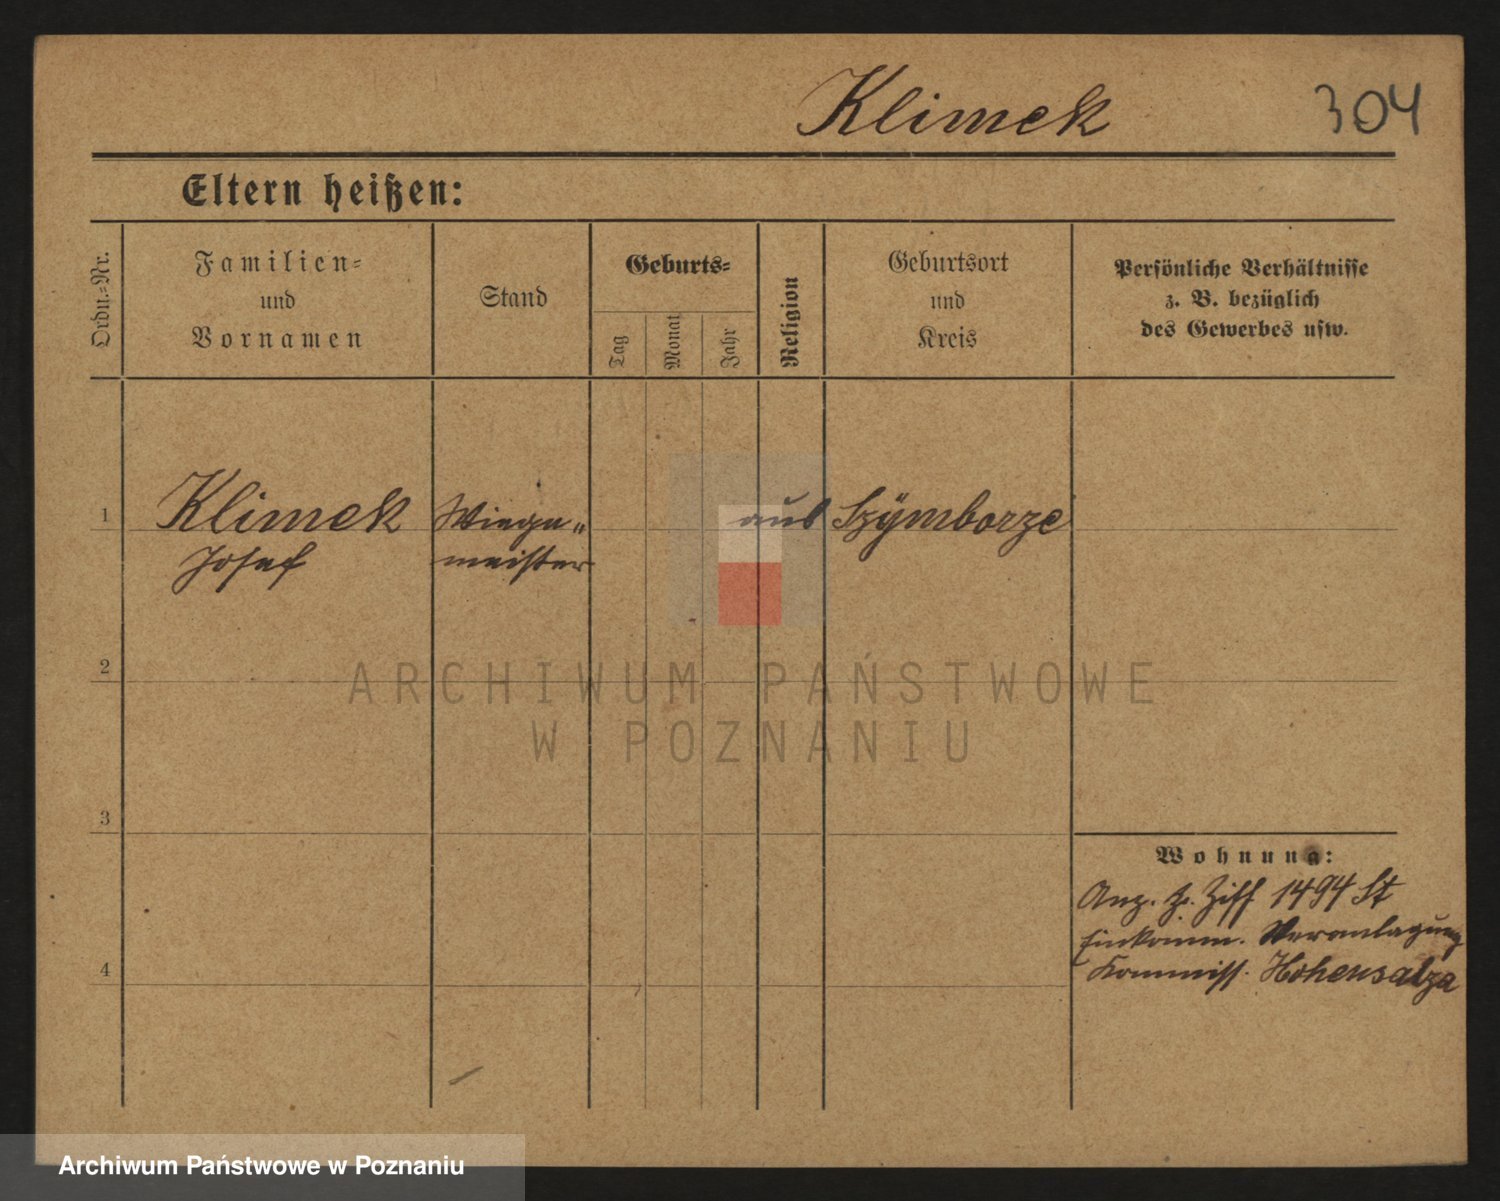 Klimek 304
Eltern heißen:
Ordn.-Nr.
Familien-
und
Vornamen
Stand
Geburts-
Tag
Monat
Jahr
Religion
Geburtsort
und
Kreis
Persönliche Verhältnisse
z. B. bezüglich
des Gewerbes usw.
1 Klimek Wiege- aus Szÿmborze
Josef meister
2
ARCHIWUM PAŃSTWOWE
W POZNANIU
3
Wohnung:
Anz. Ziff 1494 St
Einkomm. Veranlagung
4 Kommiss. Hohensalza
Archiwum Państwowe w Poznaniu